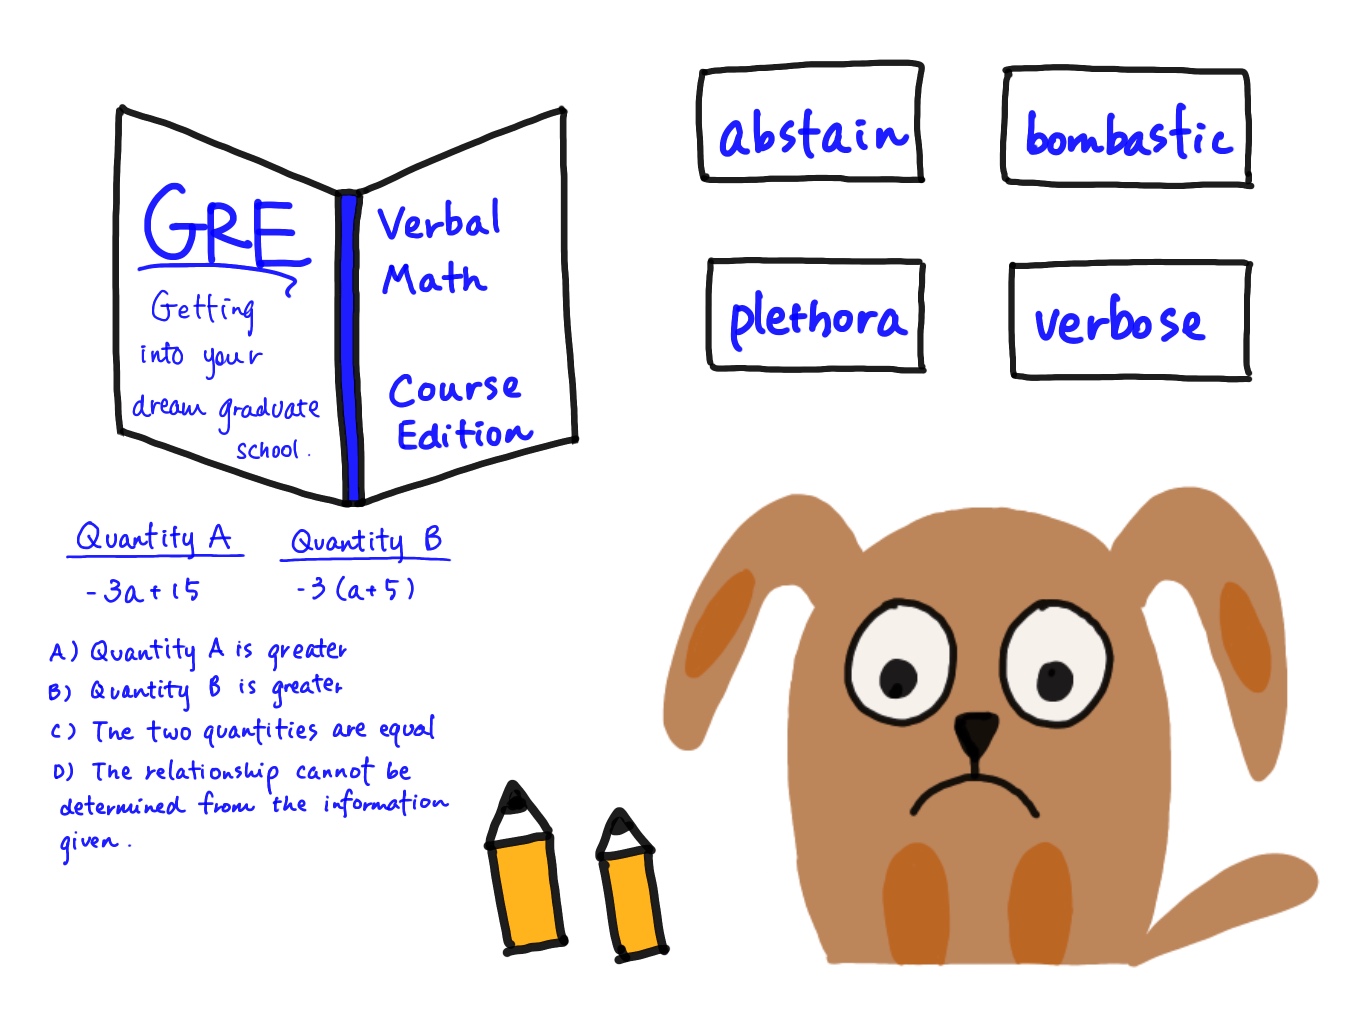 GRE
Getting
into your
dream graduate
school.
Verbal
Math
Course
Edition
abstain
bombastic
plethora
verbose
Quantity A
Quantity B
-3a+15
-3(a+5)
A) Quantity A is greater
B) Quantity B is greater
C) The two quantities are equal
D) The relationship cannot be
determined from the information
given.